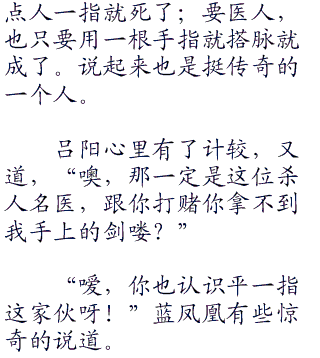 点人一指就死了；要医人，
也只要用一根手指就搭脉就
成了。说起来也是挺传奇的
一个人。
吕阳心里有了计较，又
道，“噢，那一定是这位杀
人名医，跟你打赌你拿不到
我手上的剑喽？”
“嗳，你也认识平一指
这家伙呀！”蓝凤凰有些惊
奇的说道。